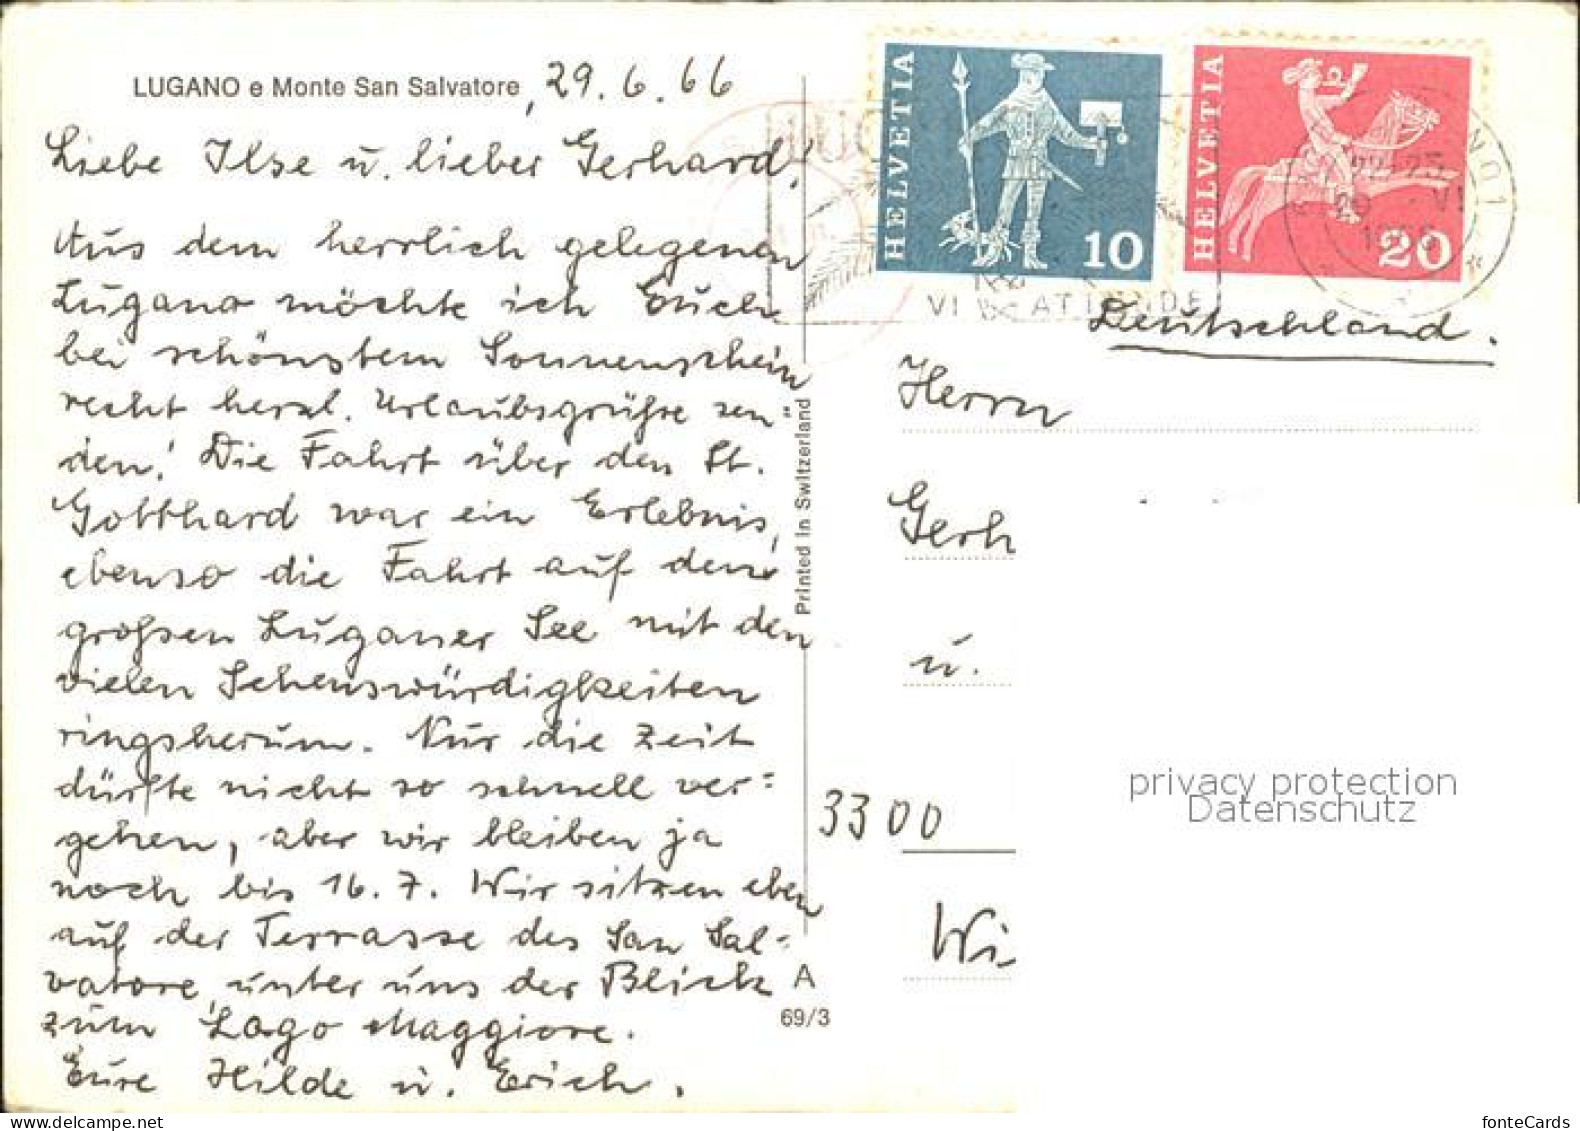 LUGANO e Monte San Salvatore, 29.6.66
Liebe Ilse u. lieber Gerhard!
Aus dem herrlich gelegenen
Lugano möchte ich Euch
bei schönstem Sonnenschein
recht herzl. Urlaubsgrüße sen"
den! Die Fahrt über den St.
Gotthard war ein Erlebnis,
ebenso die Fahrt auf dem
großen Luganer See mit den
vielen Sehenswürdigkeiten
ringsherum. Nur die Zeit
dürfte nicht so schnell ver=
gehen, aber wir bleiben ja
noch bis 16.7. Wir sitzen eben
auf der Terrasse des San Sal=
vatore, unter uns der Blick
zum Lago Maggiore.
Eure Hilde u. Erich.
Printed in Switzerland
A
69/3
HELVETIA
10
HELVETIA
20
VI ATTENDE
22-23
29 . VI
Deutschland.
Herrn
Gerh
u.
3300
Wi
privacy protection
Datenschutz
fonteCards